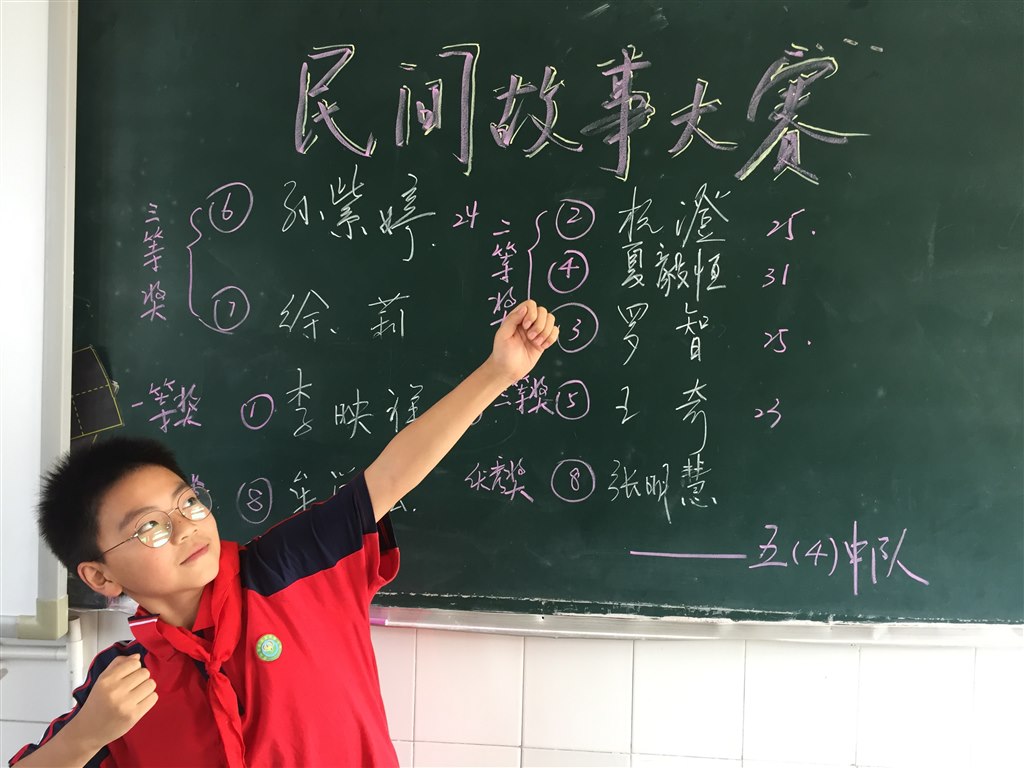 民间故事大赛
三等奖 ⑥ 孙紫婷. 24
⑦ 徐莉
一等奖 ① 李映
⑧
二等奖 ② 杭澄 25.
④ 夏毅恒 31
③ 罗智 25.
三等奖 ⑤ 王奇 23
优秀奖 ⑧ 张明慧
——五(4)中队